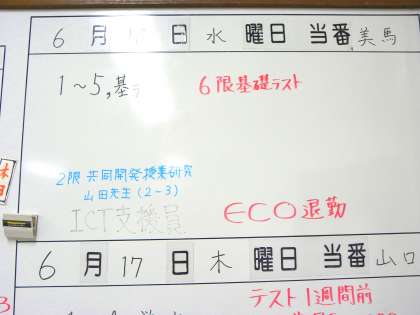 6 月 日 水 曜日 当番 美馬
1～5, 基
6限基礎テスト
2限 共同開発授業研究
山田先生(2-3)
ICT支援員
ECO退勤
6 月 17 日 木 曜日 当番 山口
テスト1週間前